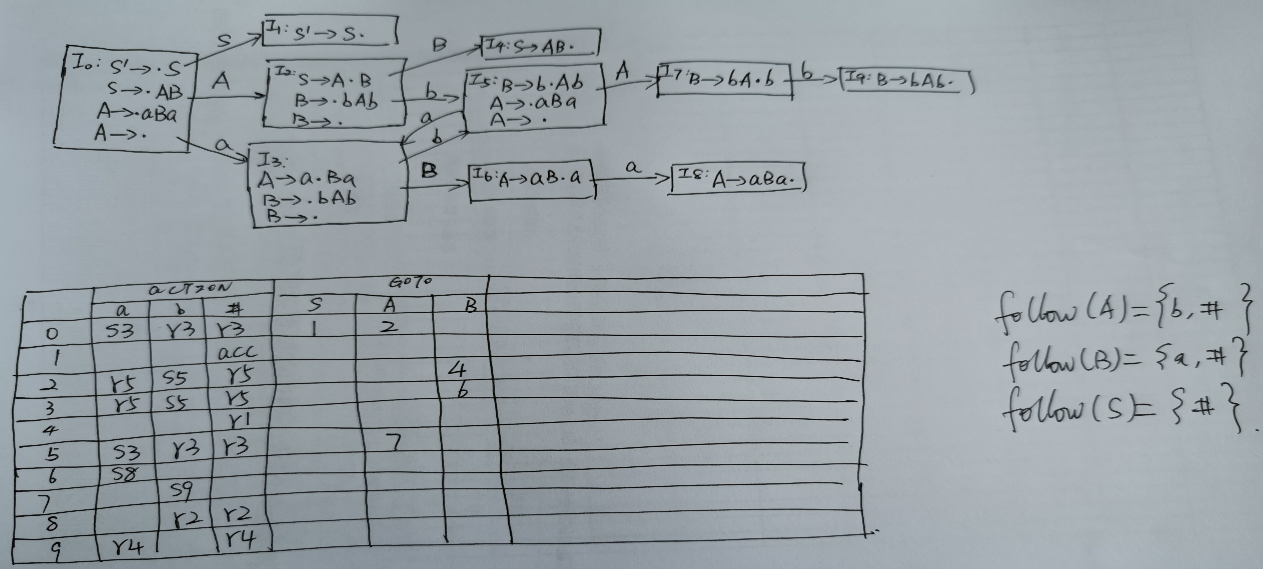 I0: S'→·S
S→·AB
A→·aBa
A→·
S
I1: S'→S·
A
I2: S→A·B
B→·bAb
B→·
B
I4: S→AB·
b
I5: B→b·Ab
A→·aBa
A→·
A
I7: B→bA·b
b
I9: B→bAb·
a
I3:
A→a·Ba
B→·bAb
B→·
a
b
B
I6: A→aB·a
a
I8: A→aBa·
ACTION GOTO
a b # S A B
0 S3 r3 r3 1 2
1 acc
2 r5 S5 r5 4
3 r5 S5 r5 6
4 r1
5 S3 r3 r3 7
6 S8
7 S9
8 r2 r2
9 r4 r4
follow(A)={b,#}
follow(B)={a,#}
follow(S)={#}.